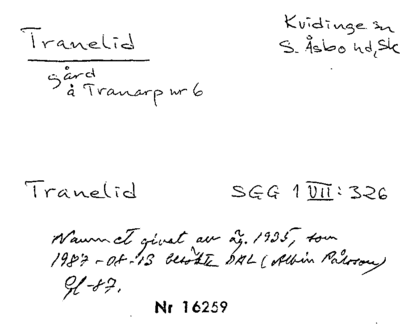 Tranelid
Kvidinge sn
S. Åsbo hd, Sk
gård
å Tranarp nr 6
Tranelid SGG 1 VII: 326
Namnet givet av äg. 1935, som
1987-08-13 besökte DAL (Albin Pålsson)
Gf-87.
Nr 16259